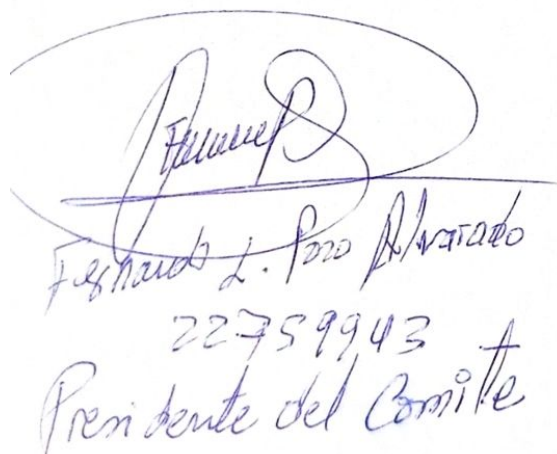 Fernando L. Pozo Alvarado
22759943
Presidente del Comite